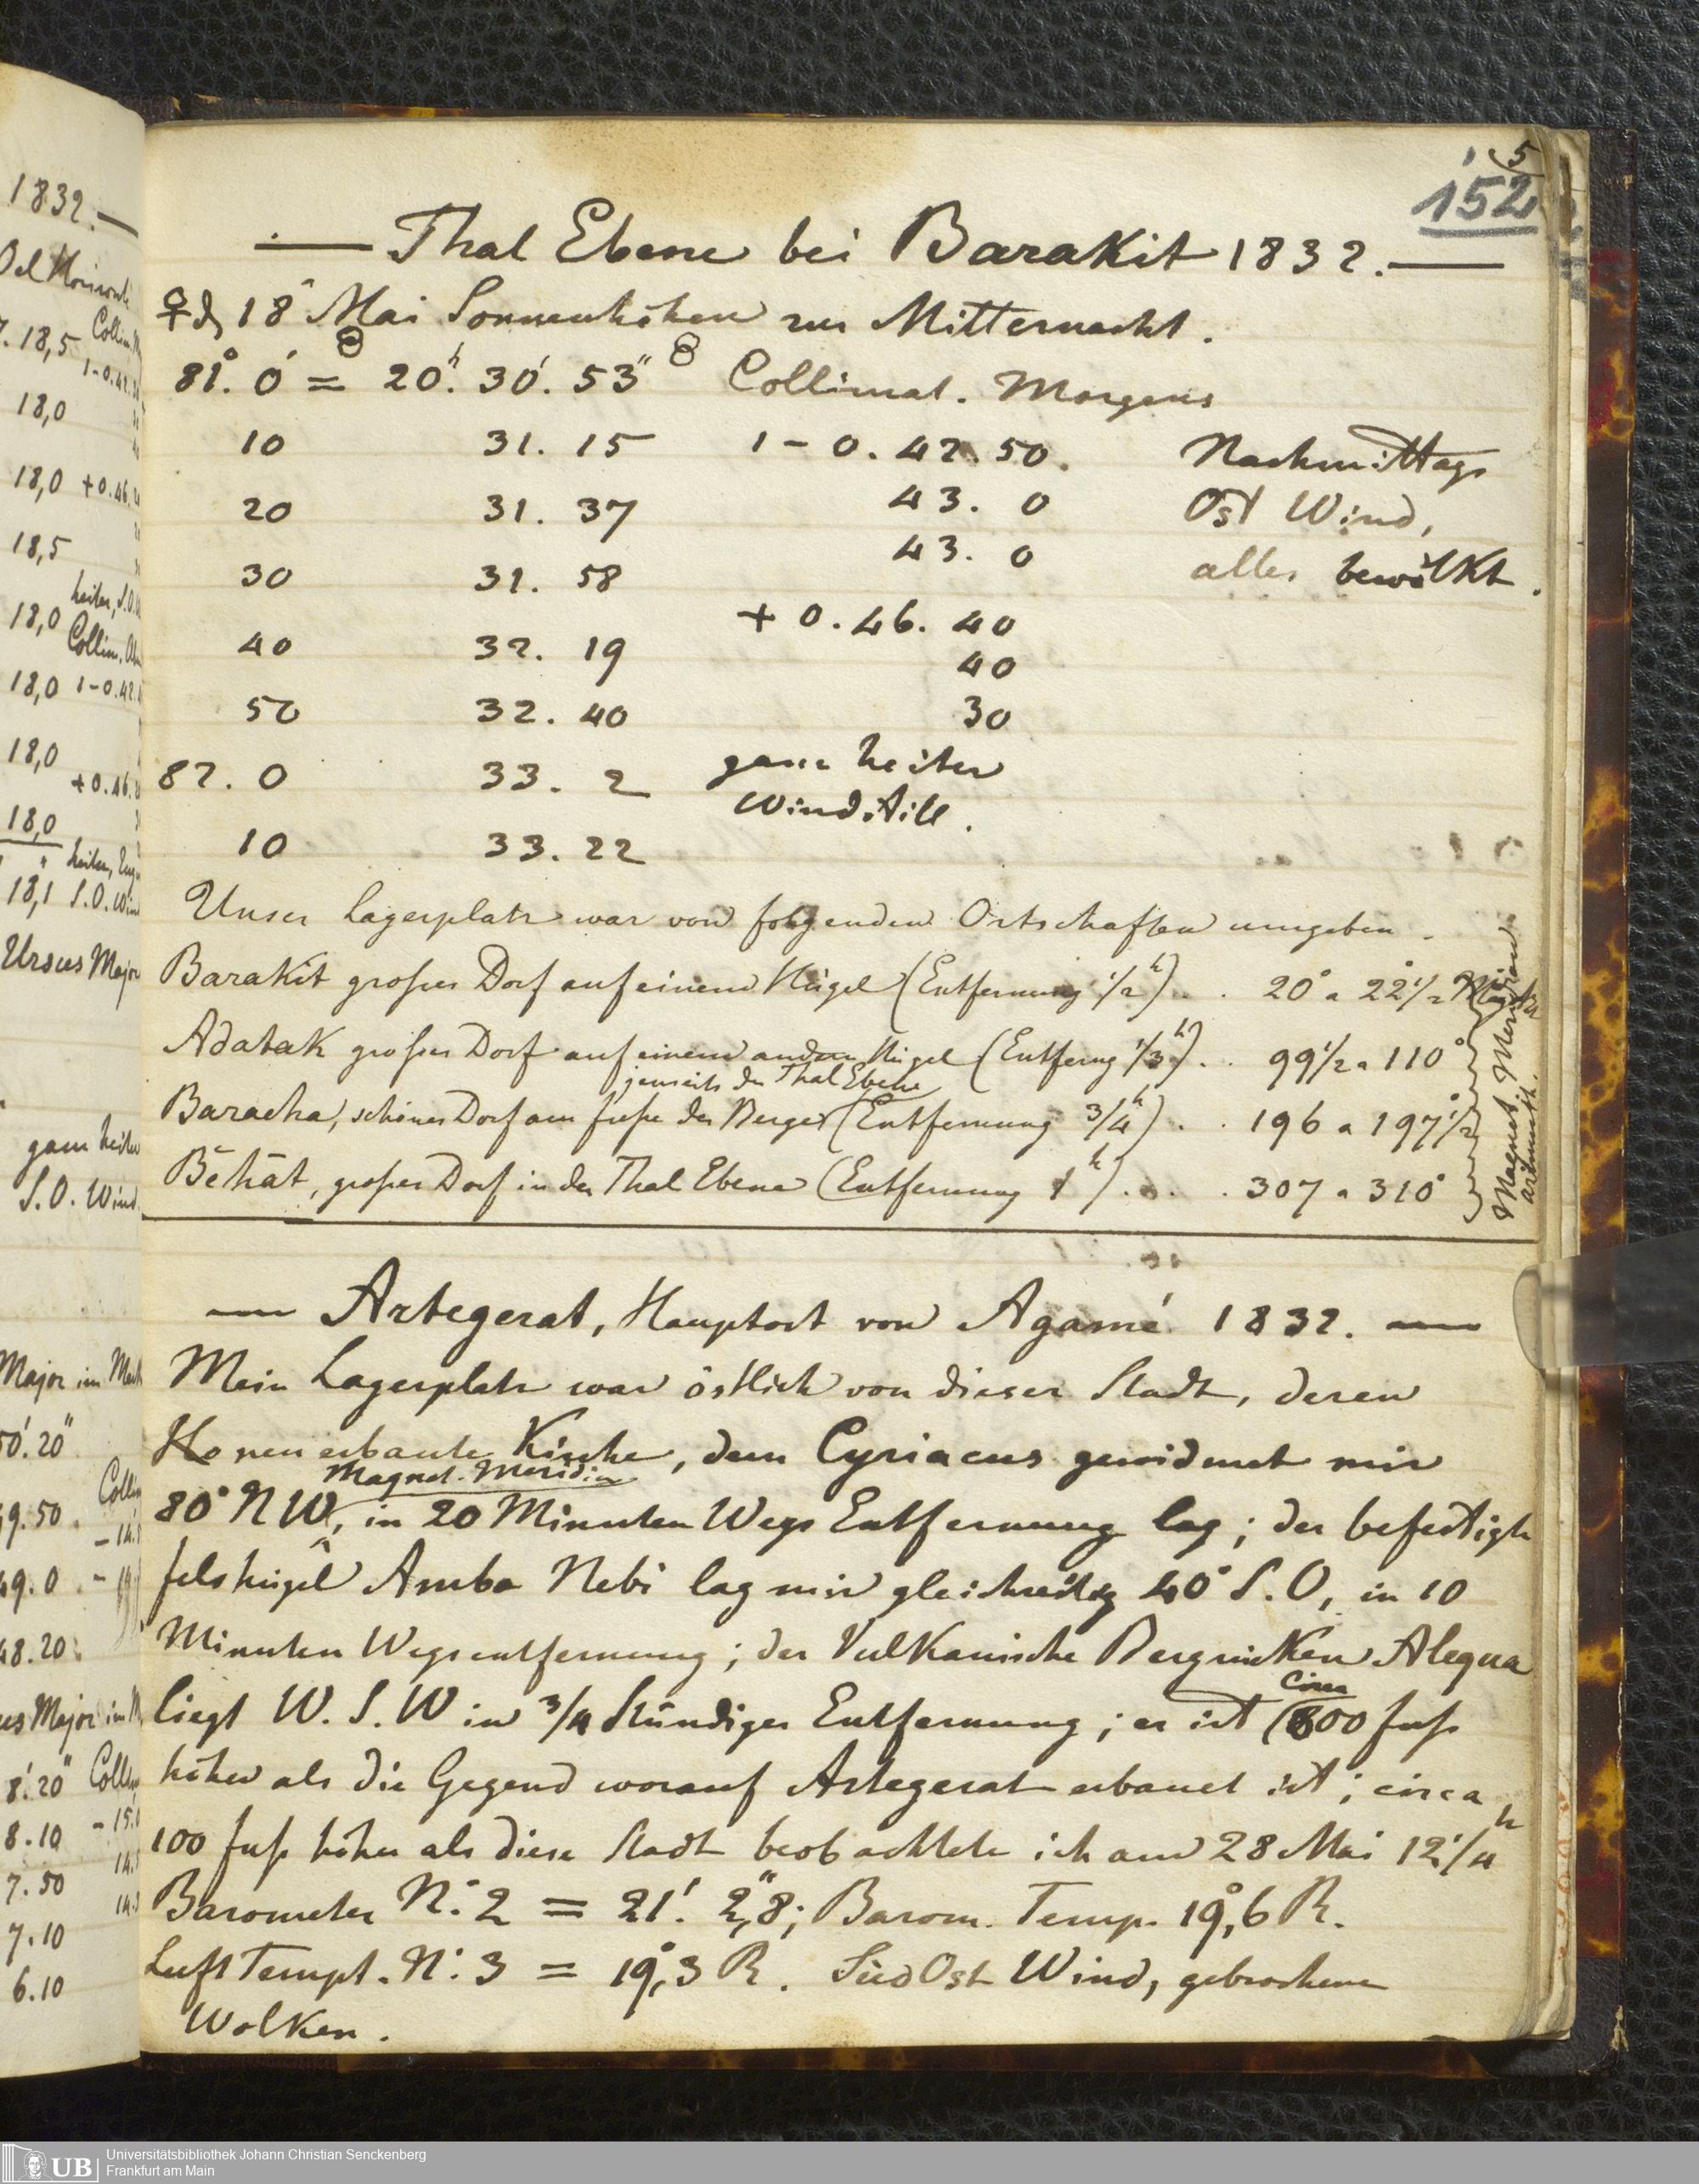 5
152
— Thal Ebene bei Barakit 1832. —
♀ d 18 Mai Sonnenhöhen zur Mitternacht.
81°. 0' = 20h. 30'. 53" Collimat. Morgens
10 31. 15 1 - 0. 42. 50. Nachmittags
20 31. 37 43. 0 Ost Wind,
30 31. 58 43. 0 alles bewölkt.
40 32. 19 + 0. 46. 40
40
50 32. 40 30
82. 0 33. 2 ganz heiter
Windstill.
10 33. 22
Unser Lagerplatz war von folgenden Ortschaften umgeben.
Barakit großes Dorf auf einem Hügel (Entfernung 1/2 h) . . 20° a 22° 1/2
Adatak großes Dorf auf einem andern Hügel (Entferng 1/3 h) . . 99 1/2 a 110°
jenseits der Thal Ebene
Baracha, schönes Dorf am fuße des Berges (Entfernung 3/4 h) . . 196 a 197° 1/2
Bēhāt, großes Dorf in der Thal Ebene (Entfernung 1 h) . . . . 307 a 310°
Magnet. Meridian
azimuth.
— Artegerat, Hauptort von Agamé 1832. —
Mein Lagerplatz war östlich von dieser Stadt, deren
neu erbaute Kirche, dem Cyriacus gewidmet mir
Magnet. Meridian
80° NW, in 20 Minuten Wegs Entfernung lag; der befestigte
felshügel Amba Nebi lag mir gleichzeitig 40° S.O, in 10
Minuten Wegsentfernung; der Vulkanische Bergrücken Alequa
liegt W. S. W in 3/4 Stündiger Entfernung; er ist 800 fuß
circa
höher als die Gegend worauf Artegerat erbauet ist; circa
100 fuß höher als diese Stadt beobachtete ich am 28 Mai 12 1/4 h
Barometer N: 2 = 21'. 2",8; Barom. Temp. 19°,6 R.
Luft Tempt. N: 3 = 19°,3 R. Süd Ost Wind, gebrochene
Wolken.
1832. —
18,5
18,0
18,0 + 0.46.
18,5
18,0
18,0 1 - 0.42.
18,0
+ 0.46.
18,0
18,1 S.O. Wind
Ursus Major
ganz heiter
S.O. Wind.
Major im
50'. 20"
49. 50.
49. 0.
48. 20.
Major im
8'. 20"
8. 10
7. 50
7. 10
6. 10
UB
Universitätsbibliothek Johann Christian Senckenberg
Frankfurt am Main